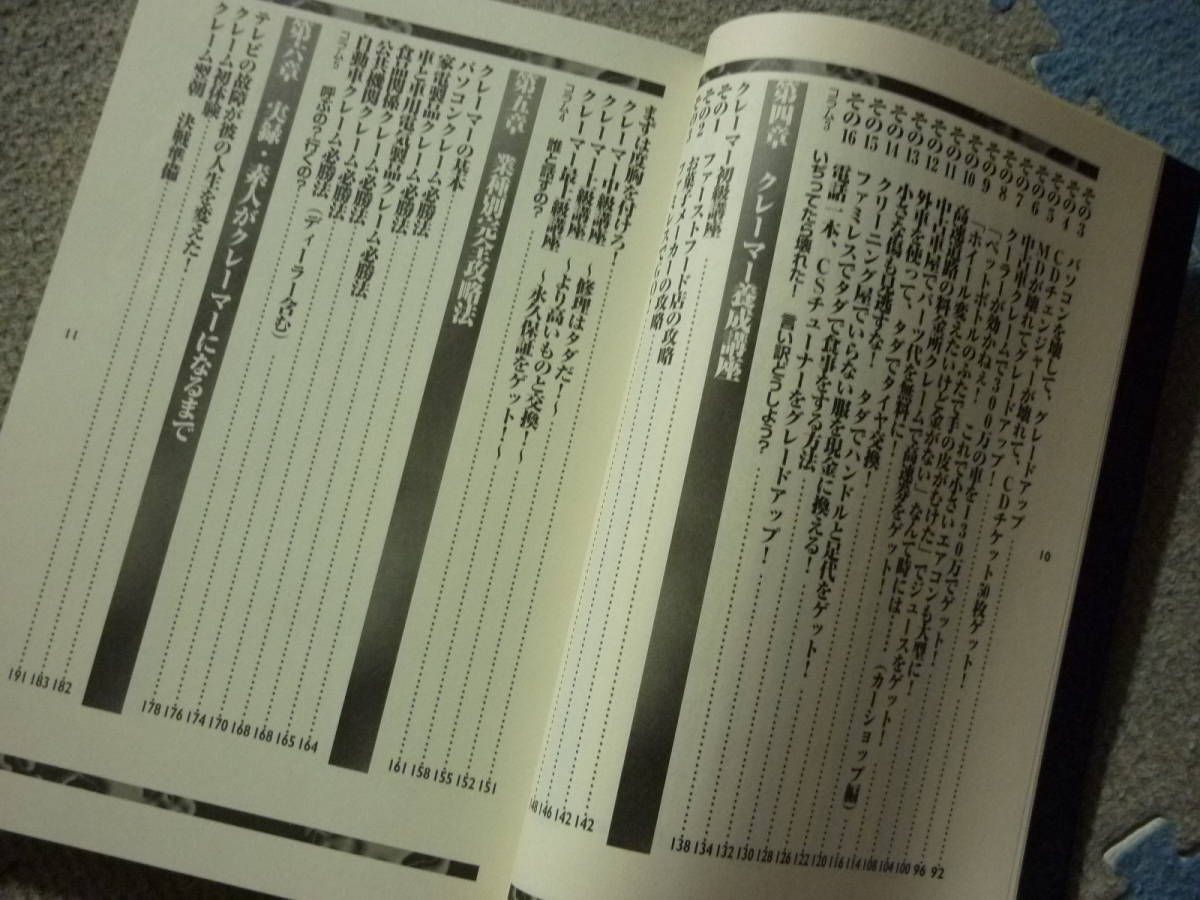 10
その3 パソコンを壊して、グレードアップ 92
その4 CDチェンジャーが壊れて、CDチケット50枚ゲット! 96
その5 MDが壊れてグレードアップ! 100
その6 中古車クレームで300万の車を130万でゲット! 104
その7 クーラーが効かねえ! これで小さいエアコンも大型に! 108
その8 「ペットボトルのふたで手の皮がむけた」でジュースをゲット! 114
その9 「ホイール変えたいけど金がない」なんて時には…(カーショップ編) 116
その10 高速道路の料金所クレームで高速券をゲット! 120
その11 中古車屋でパーツ代を無料に! 122
その12 外車を使って、タダでタイヤ交換! 126
その13 小さな傷も見逃すな! タダでハンドルと足代をゲット! 128
その14 クリーニング屋でいらない服を現金に換える! 130
その15 ファミレスでタダで食事をする方法 132
その16 電話一本、CSチューナーをグレードアップ! 134
コラム3 いぢってたら壊れた! 言い訳どうしよう? 138
第四章 クレーマー養成講座
クレーマー初級講座 142
その1 ファーストフード店の攻略 142
その2 お菓子メーカーの攻略 146
その3
11
まずは度胸を付けろ! 151
クレーマー中級講座 ～修理はタダだ!～ 152
クレーマー上級講座 ～より高いものと交換!～ 155
クレーマー最上級講座 ～永久保証をゲット!～ 158
コラム4 誰と話すの? 161
第五章 業種別完全攻略法
クレーマーの基本 164
パソコンクレーム必勝法 165
家電製品クレーム必勝法 168
車と車用電気製品クレーム必勝法 168
食品関係クレーム必勝法 170
公共機関クレーム必勝法 174
自動車クレーム必勝法(ディーラー含む) 176
コラム5 呼ぶの?行くの? 178
第六章 実録・素人がクレーマーになるまで
テレビの故障が彼の人生を変えた! 182
クレーム初体験 183
クレーム翌朝 決戦準備 191